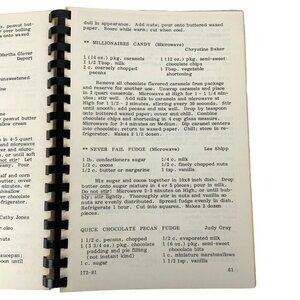 dull in appearance. Add nuts; pour onto buttered waxed
paper. Score while warm; cut when cool.
** MILLIONAIRES CANDY (Microwave)
Chrystine Baker
1 (14 oz.) pkg. caramels
1 1/2 Tbsp. milk
2 c. coarsely chopped
pecans
1 (12 oz.) pkg. semi-sweet
chocolate chips
1 Tbsp. vegetable
shortening
Remove all chocolate flavored caramels from package
and reserve for another use. Unwrap caramels and place
in 2 quart casserole. Microwave at High for 1 - 1 1/4
minutes; stir well. Add milk to caramels and microwave at
High for 1 1/2 - 2 minutes, stirring every 30 seconds. Stir
until smooth; add pecans and mix well. Drop by teaspoon
onto buttered waxed paper; cover and chill. Combine
chocolate chips and shortening in a 4-cup glass measure.
Microwave for 3-4 minutes on Medium. Dip caramel centers
into chocolate; return to waxed paper. Chill; store in re-
frigerator. Makes 2 1/2 dozen.
** NEVER FAIL FUDGE (Microwave)
Lee Shipp
1 lb. confectioners sugar
1/2 c. cocoa
1/2 c. butter or margarine
1/4 c. milk
1/2 c. finely chopped nuts
1 tsp. vanilla
Mix sugar and cocoa together in 10x8 inch dish. Drop
butter onto sugar mixture in 4 or 5 places; pour in milk.
Do not stir! Microwave 2-3 minutes on High, or until bub-
bly; stir lightly. Thoroughly stir in nuts and vanilla until
nuts are evenly distributed. Spread fudge evenly in dish.
Refrigerate 1 hour. Cut into squares. Makes 3 dozen
pieces.
QUICK CHOCOLATE PECAN FUDGE
Judy Gray
1 1/2 c. pecans, chopped
3 (3 3/4 oz.) pkg. chocolate
pudding and pie filling
(not instant kind)
1 c. sugar
1/2 c. evaporated milk
1 (6 oz.) pkg. semi-sweet
bits
1 c. miniature marshmallows
1 1/2 tsp. vanilla
172-81
61
Martha Glover
Depart
unsweetened
Cathy Jones